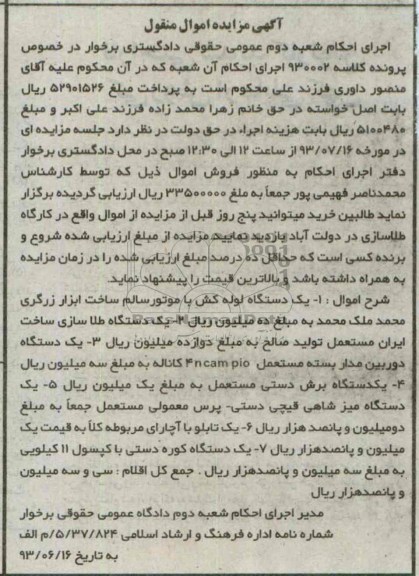 آگهی مزایده اموال منقول
اجرای احکام شعبه دوم عمومی حقوقی دادگستری برخوار در خصوص
پرونده کلاسه ۹۳۰۰۰۲ اجرای احکام آن شعبه که در آن محکوم علیه آقای
منصور داوری فرزند علی محکوم است به پرداخت مبلغ ۵۲۹۰۱۵۲۶ ریال
بابت اصل خواسته در حق خانم زهرا محمد زاده فرزند علی اکبر و مبلغ
۵۱۰۰۴۸۰ ریال بابت هزینه اجراء در حق دولت در نظر دارد جلسه مزایده ای
در مورخه ۹۳/۰۷/۱۶ از ساعت ۱۲ الی ۱۲:۳۰ صبح در محل دادگستری برخوار
دفتر اجرای احکام به منظور فروش اموال ذیل که توسط کارشناس
محمدناصر فهیمی پور جمعاً به ملغ ۳۳۵۰۰۰۰۰ ریال ارزیابی گردیده برگزار
نماید طالبین خرید میتوانید پنج روز قبل از مزایده از اموال واقع در کارگاه
طلاسازی در دولت آباد بازدید نمایید مزایده از مبلغ ارزیابی شده شروع و
برنده کسی است که حداقل ده درصد مبلغ ارزیابی شده را در زمان مزایده
به همراه داشته باشد و بالاترین قیمت را پیشنهاد نماید.
شرح اموال : ۱- یک دستگاه لوله کش با موتورسالم ساخت ابزار زرگری
محمد ملک محمد به مبلغ ده میلیون ریال ۲- یکدستگاه طلا سازی ساخت
ایران مستعمل تولید صالح به مبلغ دوازده میلیون ریال ۳- یک دستگاه
دوربین مدار بسته مستعمل ۴ncam pio کاناله به مبلغ سه میلیون ریال
۴- یکدستگاه برش دستی مستعمل به مبلغ یک میلیون ریال ۵- یک
دستگاه میز شاهی قیچی دستی- پرس معمولی مستعمل جمعاً به مبلغ
دومیلیون و پانصد هزار ریال ۶- یک تابلو با آچارای مربوطه کلاً به قیمت یک
میلیون و پانصدهزار ریال ۷- یک دستگاه کوره دستی با کپسول ۱۱ کیلویی
به مبلغ سه میلیون و پانصدهزار ریال . جمع کل اقلام : سی و سه میلیون
و پانصدهزار ریال
مدیر اجرای احکام شعبه دوم دادگاه عمومی حقوقی برخوار
شماره نامه اداره فرهنگ و ارشاد اسلامی ۵/۳۷/۸۲۴/م الف
به تاریخ ۹۳/۰۶/۱۶